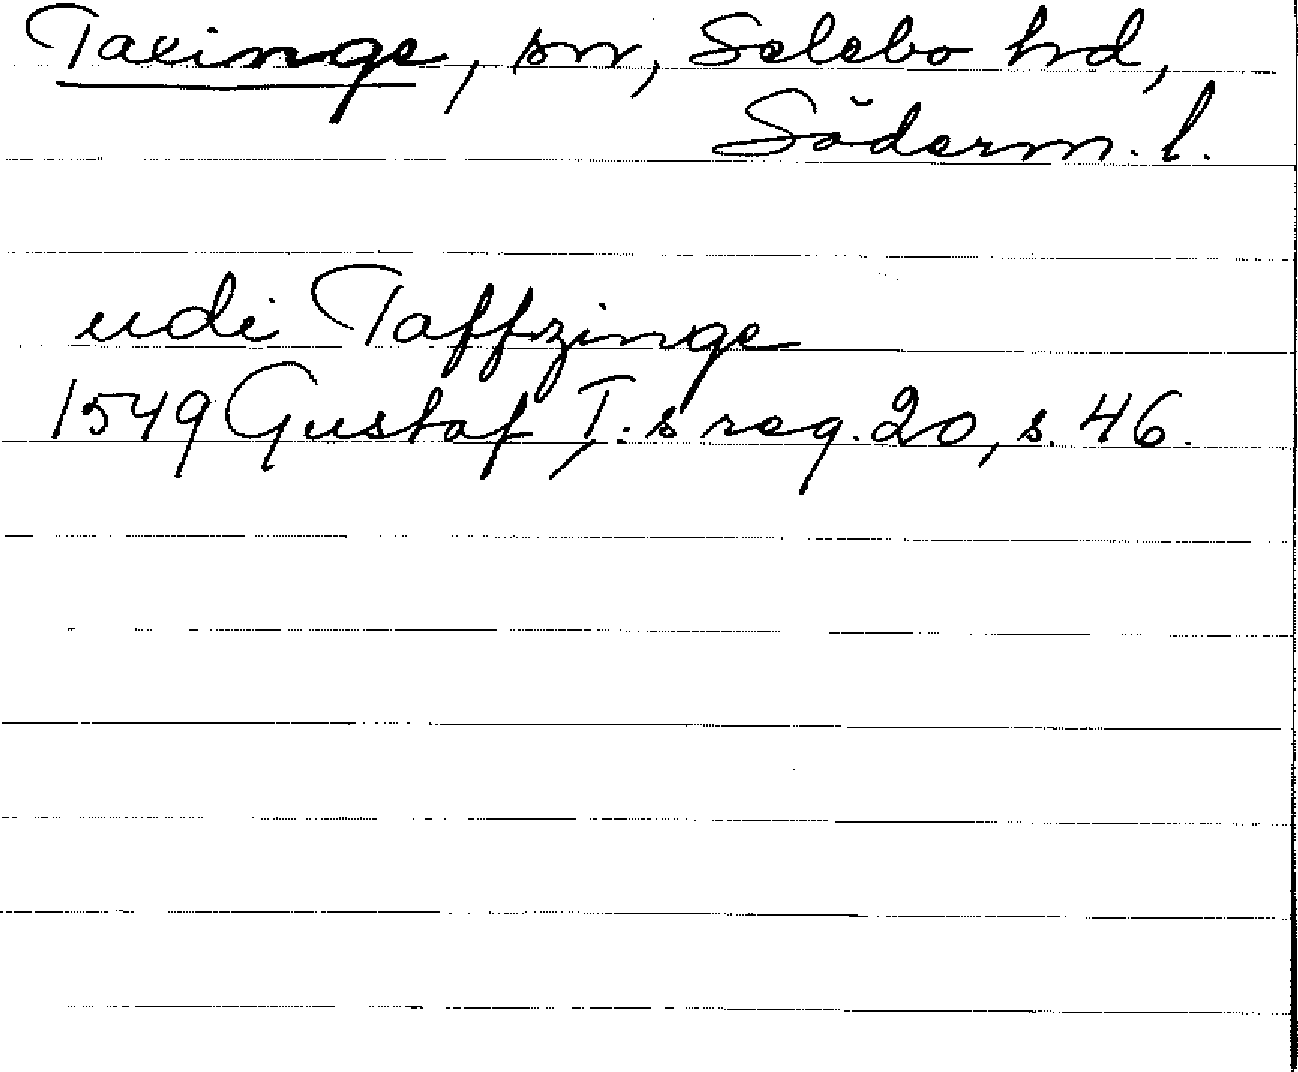 Taxinge, sn, Selebo hd,
Söderm. l.
udi Taffzinge
1549 Gustaf I:s reg. 20, s. 46.